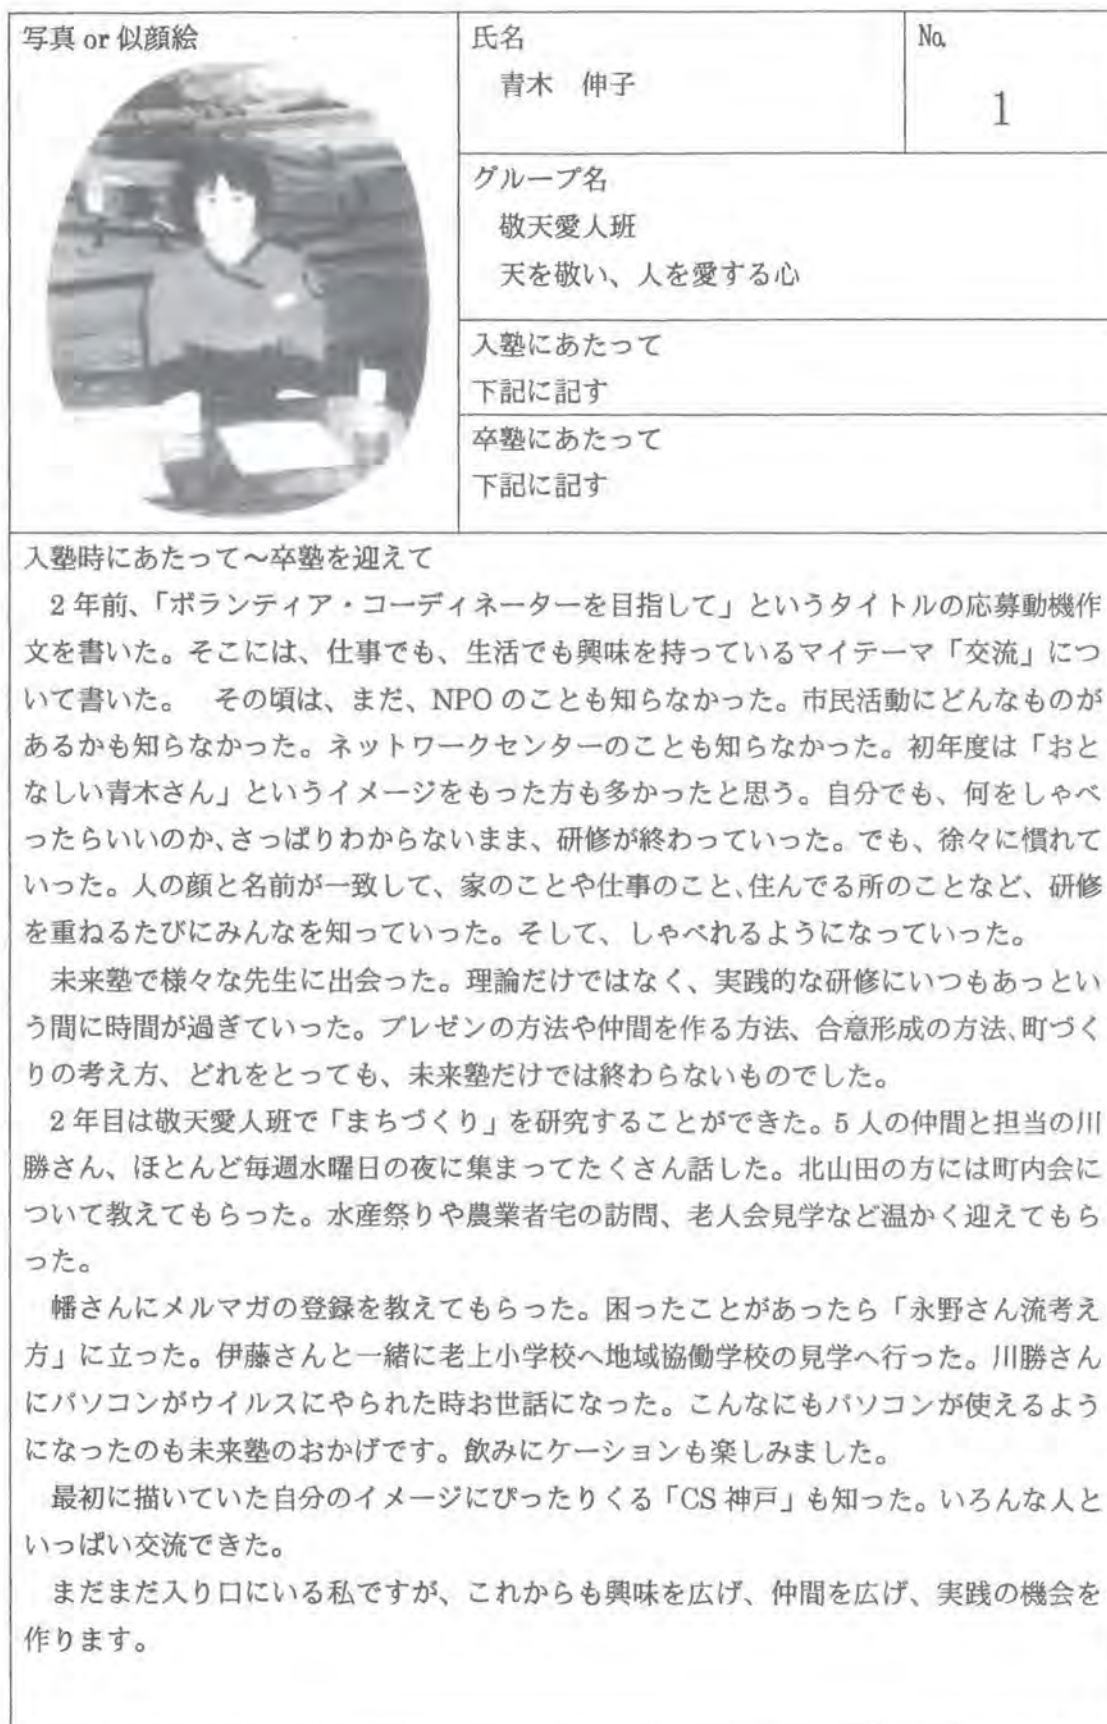 写真 or 似顔絵
氏名
青木　伸子
No.
1
グループ名
敬天愛人班
天を敬い、人を愛する心
入塾にあたって
下記に記す
卒塾にあたって
下記に記す
入塾時にあたって～卒塾を迎えて
２年前、「ボランティア・コーディネーターを目指して」というタイトルの応募動機作
文を書いた。そこには、仕事でも、生活でも興味を持っているマイテーマ「交流」につ
いて書いた。　その頃は、まだ、NPO のことも知らなかった。市民活動にどんなものが
あるかも知らなかった。ネットワークセンターのことも知らなかった。初年度は「おと
なしい青木さん」というイメージをもった方も多かったと思う。自分でも、何をしゃべ
ったらいいのか、さっぱりわからないまま、研修が終わっていった。でも、徐々に慣れて
いった。人の顔と名前が一致して、家のことや仕事のこと、住んでる所のことなど、研修
を重ねるたびにみんなを知っていった。そして、しゃべれるようになっていった。
未来塾で様々な先生に出会った。理論だけではなく、実践的な研修にいつもあっとい
う間に時間が過ぎていった。プレゼンの方法や仲間を作る方法、合意形成の方法、町づく
りの考え方、どれをとっても、未来塾だけでは終わらないものでした。
２年目は敬天愛人班で「まちづくり」を研究することができた。5 人の仲間と担当の川
勝さん、ほとんど毎週水曜日の夜に集まってたくさん話した。北山田の方には町内会に
ついて教えてもらった。水産祭りや農業者宅の訪問、老人会見学など温かく迎えてもら
った。
幡さんにメルマガの登録を教えてもらった。困ったことがあったら「永野さん流考え
方」に立った。伊藤さんと一緒に老上小学校へ地域協働学校の見学へ行った。川勝さん
にパソコンがウイルスにやられた時お世話になった。こんなにもパソコンが使えるよう
になったのも未来塾のおかげです。飲みにケーションも楽しみました。
最初に描いていた自分のイメージにぴったりくる「CS 神戸」も知った。いろんな人と
いっぱい交流できた。
まだまだ入り口にいる私ですが、これからも興味を広げ、仲間を広げ、実践の機会を
作ります。